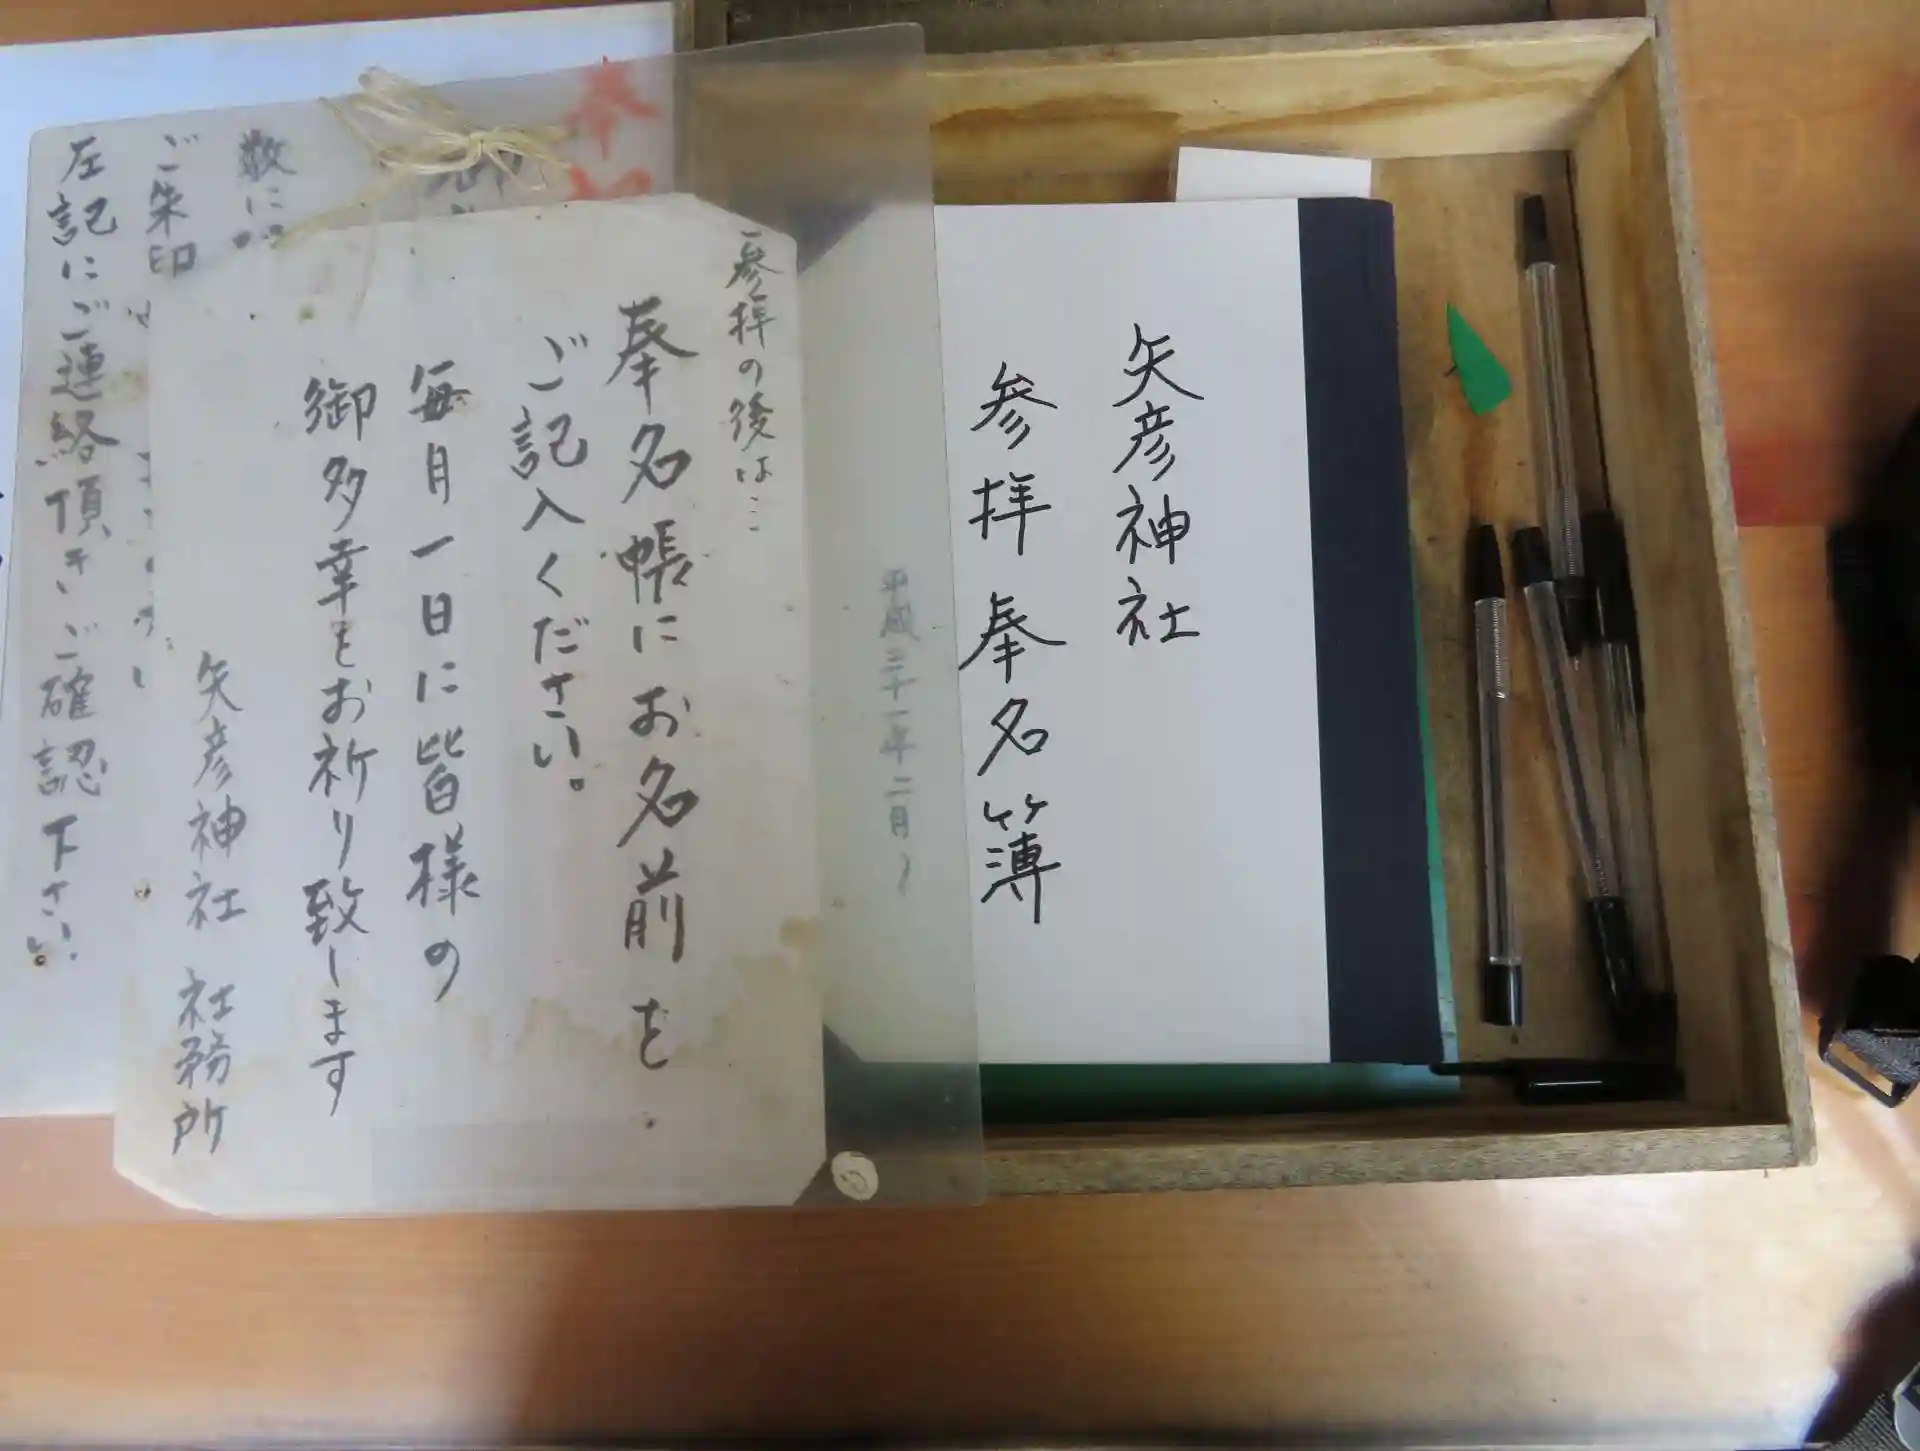 矢彦神社
参拝奉名簿
平成三十一年二月～
参拝の後は…
奉名帳にお名前を
ご記入ください。
毎月一日に皆様の
御多幸をお祈り致します
矢彦神社 社務所
奉
数に
ご朱印
左記にご連絡頂きご確認下さい。